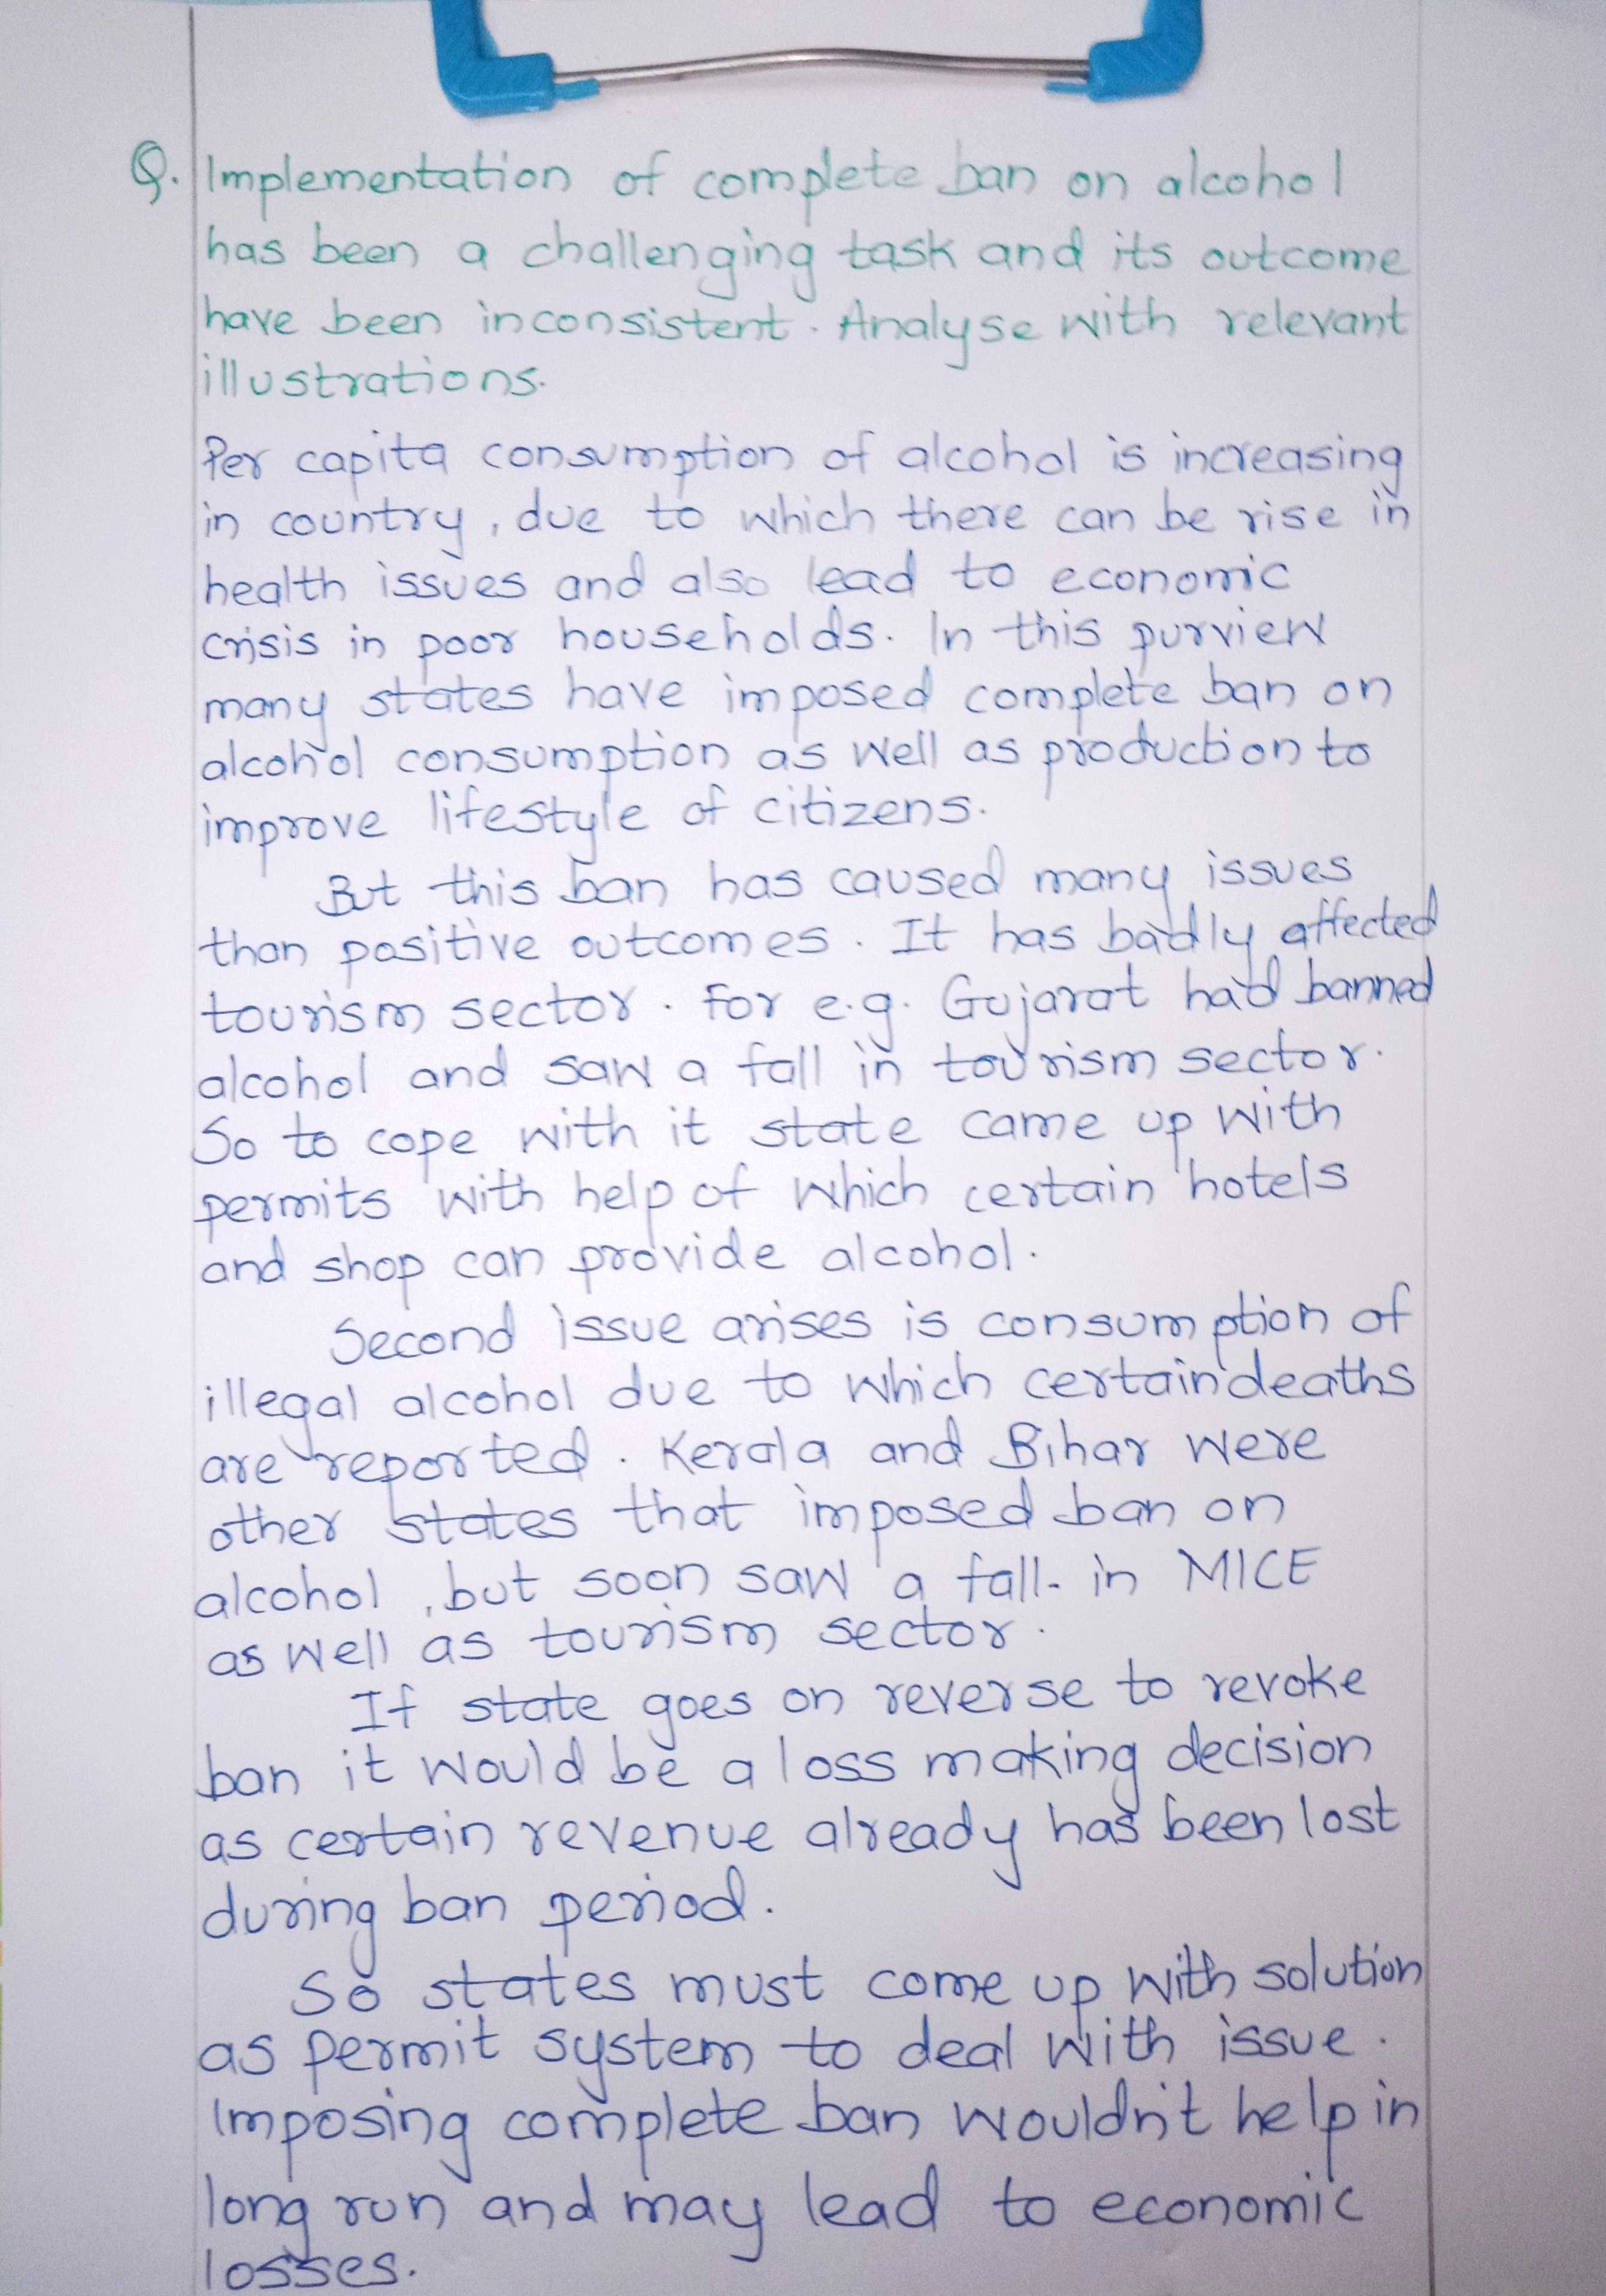 Q. Implementation of complete ban on alcohol
has been a challenging task and its outcome
have been inconsistent. Analyse with relevant
illustrations.
Per capita consumption of alcohol is increasing
in country, due to which there can be rise in
health issues and also lead to economic
crisis in poor households. In this purview
many states have imposed complete ban on
alcohol consumption as well as production to
improve lifestyle of citizens.
But this ban has caused many issues
than positive outcomes. It has badly affected
tourism sector. For e.g. Gujarat had banned
alcohol and saw a fall in tourism sector.
So to cope with it state came up with
permits with help of which certain hotels
and shop can provide alcohol.
Second issue arises is consumption of
illegal alcohol due to which certain deaths
are reported. Kerala and Bihar were
other states that imposed ban on
alcohol, but soon saw a fall in MICE
as well as tourism sector.
If state goes on reverse to revoke
ban it would be a loss making decision
as certain revenue already has been lost
during ban period.
So states must come up with solution
as permit system to deal with issue.
Imposing complete ban wouldn't help in
long run and may lead to economic
losses.